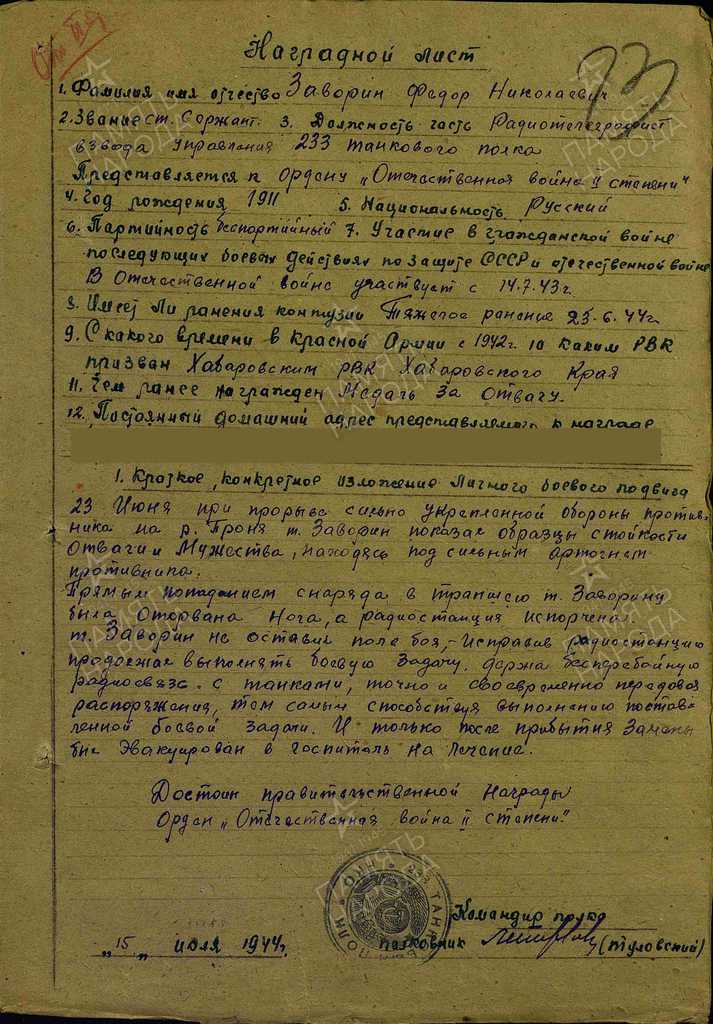 Наградной лист
1. Фамилия имя отчество Заворин Федор Николаевич
2. Звание ст. Сержант. 3. Должность часть Радиотелеграфист
взвода управления 233 танкового полка
Представляется к ордену „Отечественная война II степени"
4. Год рождения 1911 5. Национальность Русский
6. Партийность беспортийный 7. Участие в гражданской войне
последующих боевых действиях по защите СССР и отечественной войне
В Отечественной войне участвует с 14.7.43г.
8. Имеет ли ранения контузии Тяжелое ранение 23.6.44г.
9. С какого времени в Красной Армии с 1942г. 10 каким РВК
призван Хабаровским РВК Хабаровского Края
11. Чем ранее награжден Медаль За Отвагу.
12. Постоянный домашний адрес представляемого к награде
1. Краткое, конкретное изложение личного боевого подвига
23 Июня при прорыве сильно укрепленной обороны против-
ника на р. Проня т. Заворин показал образцы стойкости
Отваги и Мужества, находясь под сильным артогнем
противника.
Прямым попаданием снаряда в траншею т. Заворину
была Оторвана Нога, а радиостанция испорчена.
т. Заворин не оставил поле боя, - Исправив радиостанцию
продолжал выполнять боевую Задачу. держа бесперебойную
радиосвязь с танками, точно и своевременно передавая
распоряжения, тем самым способствуя выполнению постав-
ленной боевой Задачи. И только после прибытия Замены
был Эвакуирован в Госпиталь на лечение.
Достоин правительственной Награды
Орден „Отечественная война II степени."
Командир полка
„15„ июля 1944г. полковник (Туловский)
73
233 ТАНКОВЫЙ ПОЛК
НКО
ПАМЯТЬ НАРОДА